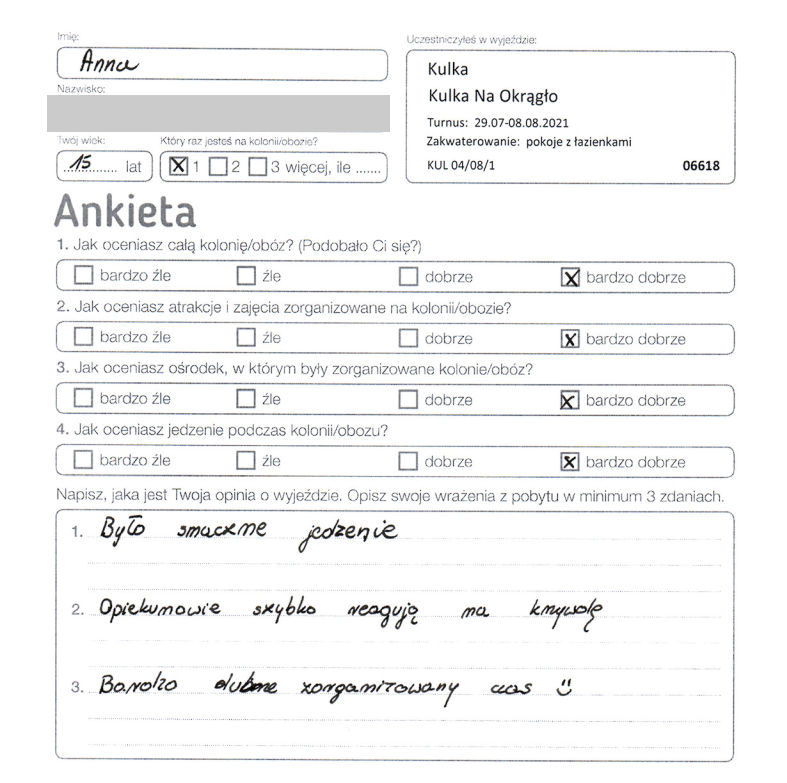 Imię:
Anna
Nazwisko:
Twój wiek:
15 lat
Który raz jesteś na kolonii/obozie?
X 1 2 3 więcej, ile .......
Uczestniczyłeś w wyjeździe:
Kulka
Kulka Na Okrągło
Turnus: 29.07-08.08.2021
Zakwaterowanie: pokoje z łazienkami
KUL 04/08/1 06618
Ankieta
1. Jak oceniasz całą kolonię/obóz? (Podobało Ci się?)
bardzo źle źle dobrze X bardzo dobrze
2. Jak oceniasz atrakcje i zajęcia zorganizowane na kolonii/obozie?
bardzo źle źle dobrze X bardzo dobrze
3. Jak oceniasz ośrodek, w którym były zorganizowane kolonie/obóz?
bardzo źle źle dobrze X bardzo dobrze
4. Jak oceniasz jedzenie podczas kolonii/obozu?
bardzo źle źle dobrze X bardzo dobrze
Napisz, jaka jest Twoja opinia o wyjeździe. Opisz swoje wrażenia z pobytu w minimum 3 zdaniach.
1. Było smaczne jedzenie
2. Opiekunowie szybko reagują na krzywdę
3. Bardzo zorganizowany czas